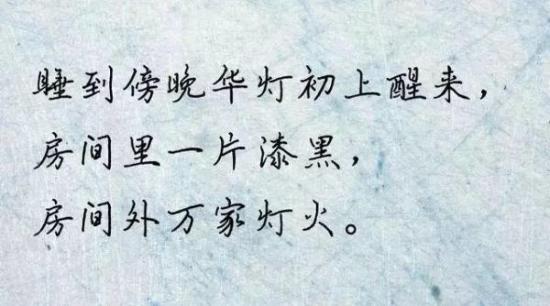 睡到傍晚华灯初上醒来，
房间里一片漆黑，
房间外万家灯火。